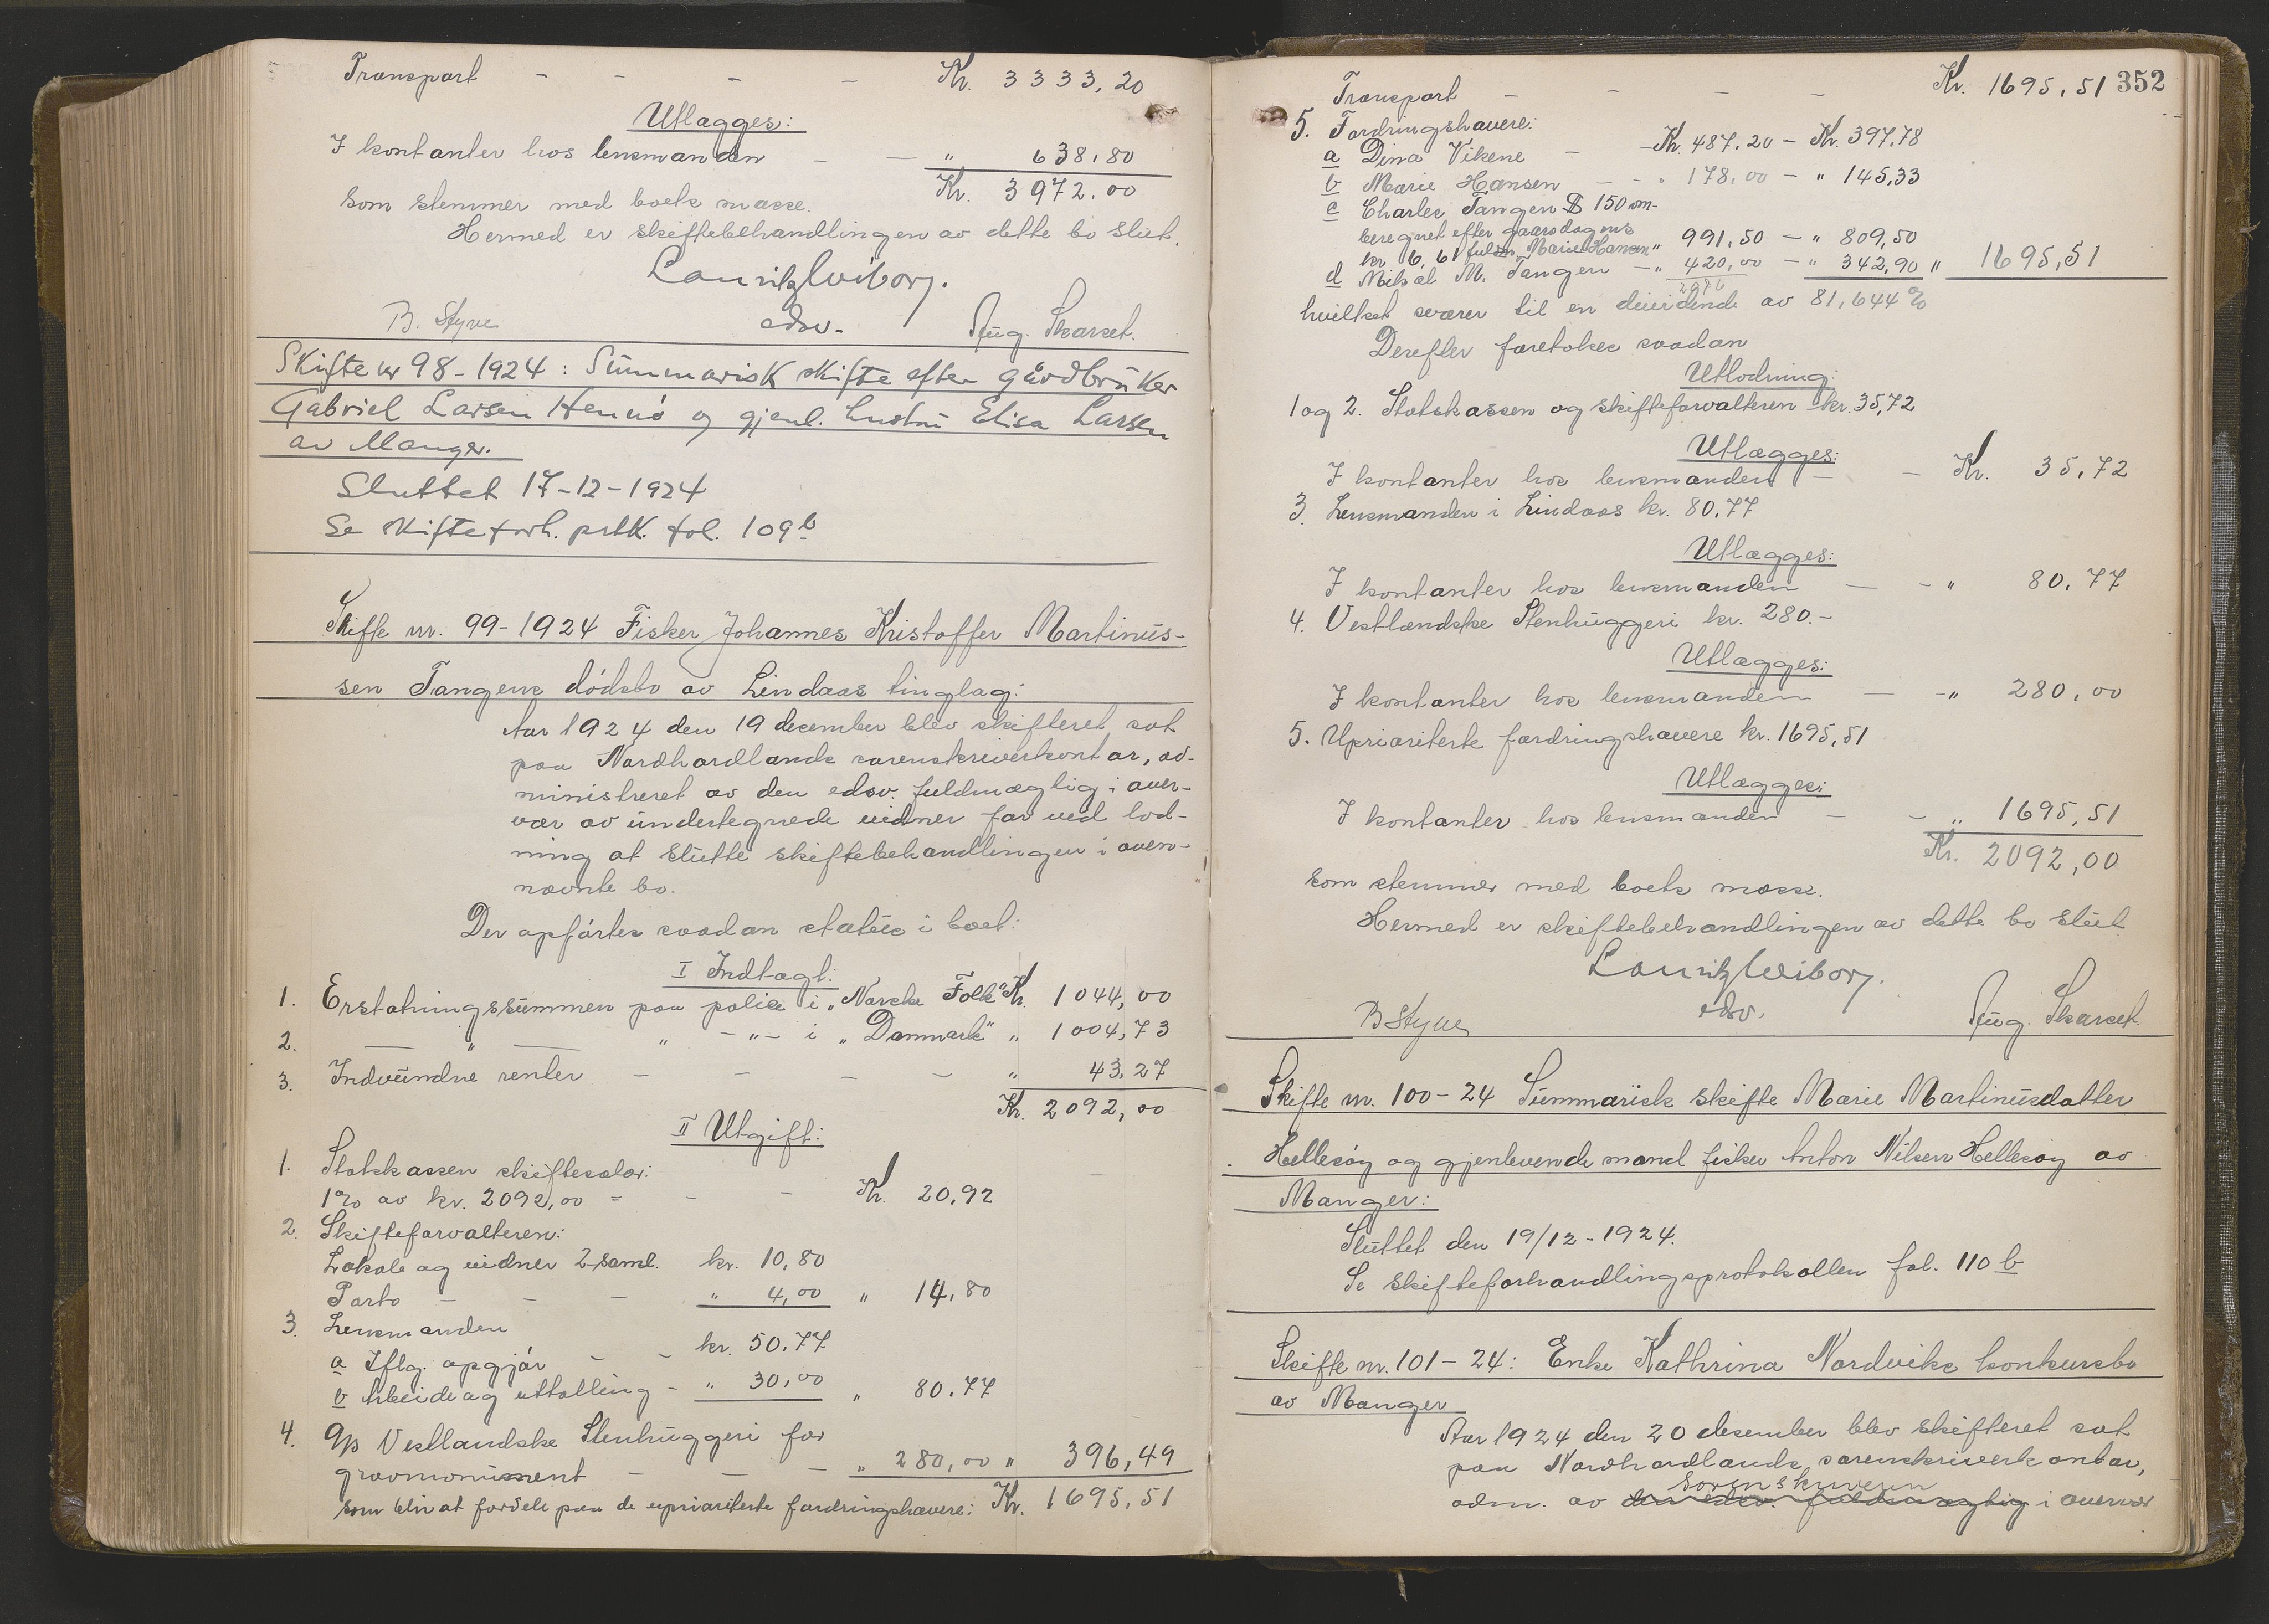 Transport - - - - Kr. 3333,20
Utlægges:
I kontanter hos lensmanden - - " 638,80
Kr. 3972,00
som stemmer med boets masse.
Hermed er skiftebehandlingen av dette bo slut.
Lauritz Wiborg.
B. Styve edsv. Aug. Skarset.
Skifte nr 98 - 1924 : Summarisk skifte efter gårdbruker
Gabriel Larsen Hennø og gjenl. hustru Elisa Larsen
av Manger.
Sluttet 17-12-1924
Se Skifteforh. prtk. fol. 109 b
Skifte nr. 99-1924 Fisker Johannes Kristoffer Martinus-
sen Tangens dödsbo av Lindaas tinglag:
Aar 1924 den 19 desember blev skifteret sat
paa Nordhordlands sorenskriverkontor, ad-
ministreret av den edsv. fuldmægtig i over-
vær av undertegnede vidner for ved lod-
ning at slutte skiftebehandlingen i oven-
nævnte bo.
Der opförtes saadan status i boet:
I Indtægt:
1. Erstatningssummen paa police i „Norske Folk" Kr. 1044,00
2. — " — " -"- i „Danmark" " 1004,73
3. Indvundne renter - - - - " 43,27
Kr. 2092,00
II Utgift:
1. Statskassen skiftesalær:
1% av kr. 2092,00 = - - Kr. 20,92
2. Skifteforvalteren:
Lokale og vidner 2 saml. kr. 10,80
Porto - - - " 4,00 " 14,80
3. Lensmanden
a Iflg. opgjör - - kr. 50,77
b Arbeide og uttælling - " 30,00 " 80,77
4. A/s Vestlandske Stenhuggeri for
gravmonument - - - " 280,00 " 396,49
som blir at fordele paa de uprioriterte fordringshavere: Kr. 1695,51
352
Transport - - - - Kr. 1695,51
5. Fordringshavere:
a Dina Vikene - - Kr. 487,20 - Kr. 397,78
b Marie Hansen - - " 178,00 - " 145,33
c Charles Tangen $ 150 om-
beregnet efter gaarsdagens
kr 6,61 fuldm. Marie Hansen " 991,50 - " 809,50
d Mikal M. Tangen - " 420,00 - " 342,90 " 1695,51
2076
hvilket svarer til en dividende av 81,644 %
Derefter foretokes saadan
Utlodning:
1 og 2. Statskassen og skifteforvalteren kr. 35,72
Utlægges:
I kontanter hos lensmanden - - Kr. 35,72
3. Lensmanden i Lindaas kr. 80.77
Utlægges:
I kontanter hos lensmanden - - " 80.77
4. Vestlandske Stenhuggeri kr. 280.-
Utlægges:
I kontanter hos lensmanden - - " 280,00
5. Uprioriterte fordringshavere kr. 1695,51
Utlægges:
I kontanter hos lensmanden - - " 1695,51
Kr. 2092,00
som stemmer med boets masse.
Hermed er skiftebehandlingen av dette bo slut
Lauritz Wiborg.
B Styve edsv. Aug. Skarset.
Skifte nr. 100-24 Summarisk skifte Marie Martinusdatter
Hellesöy og gjenlevende mand fisker Anton Nilsen Hellesöy av
Manger:
Sluttet den 19/12-1924.
Se skifteforhandlingsprotokollen fol. 110 b
Skifte nr. 101-24: Enke Kathrina Nordviks konkursbo
av Manger
Aar 1924 den 20 desember blev skifteret sat
paa Nordhordlands sorenskriverkontor,
sorenskriveren
adm. av den edsv. fuldmægtig i overvær